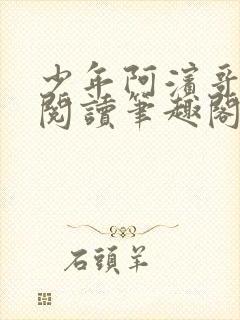 少年阿濱哥
閱讀筆趣閣
石頭羊